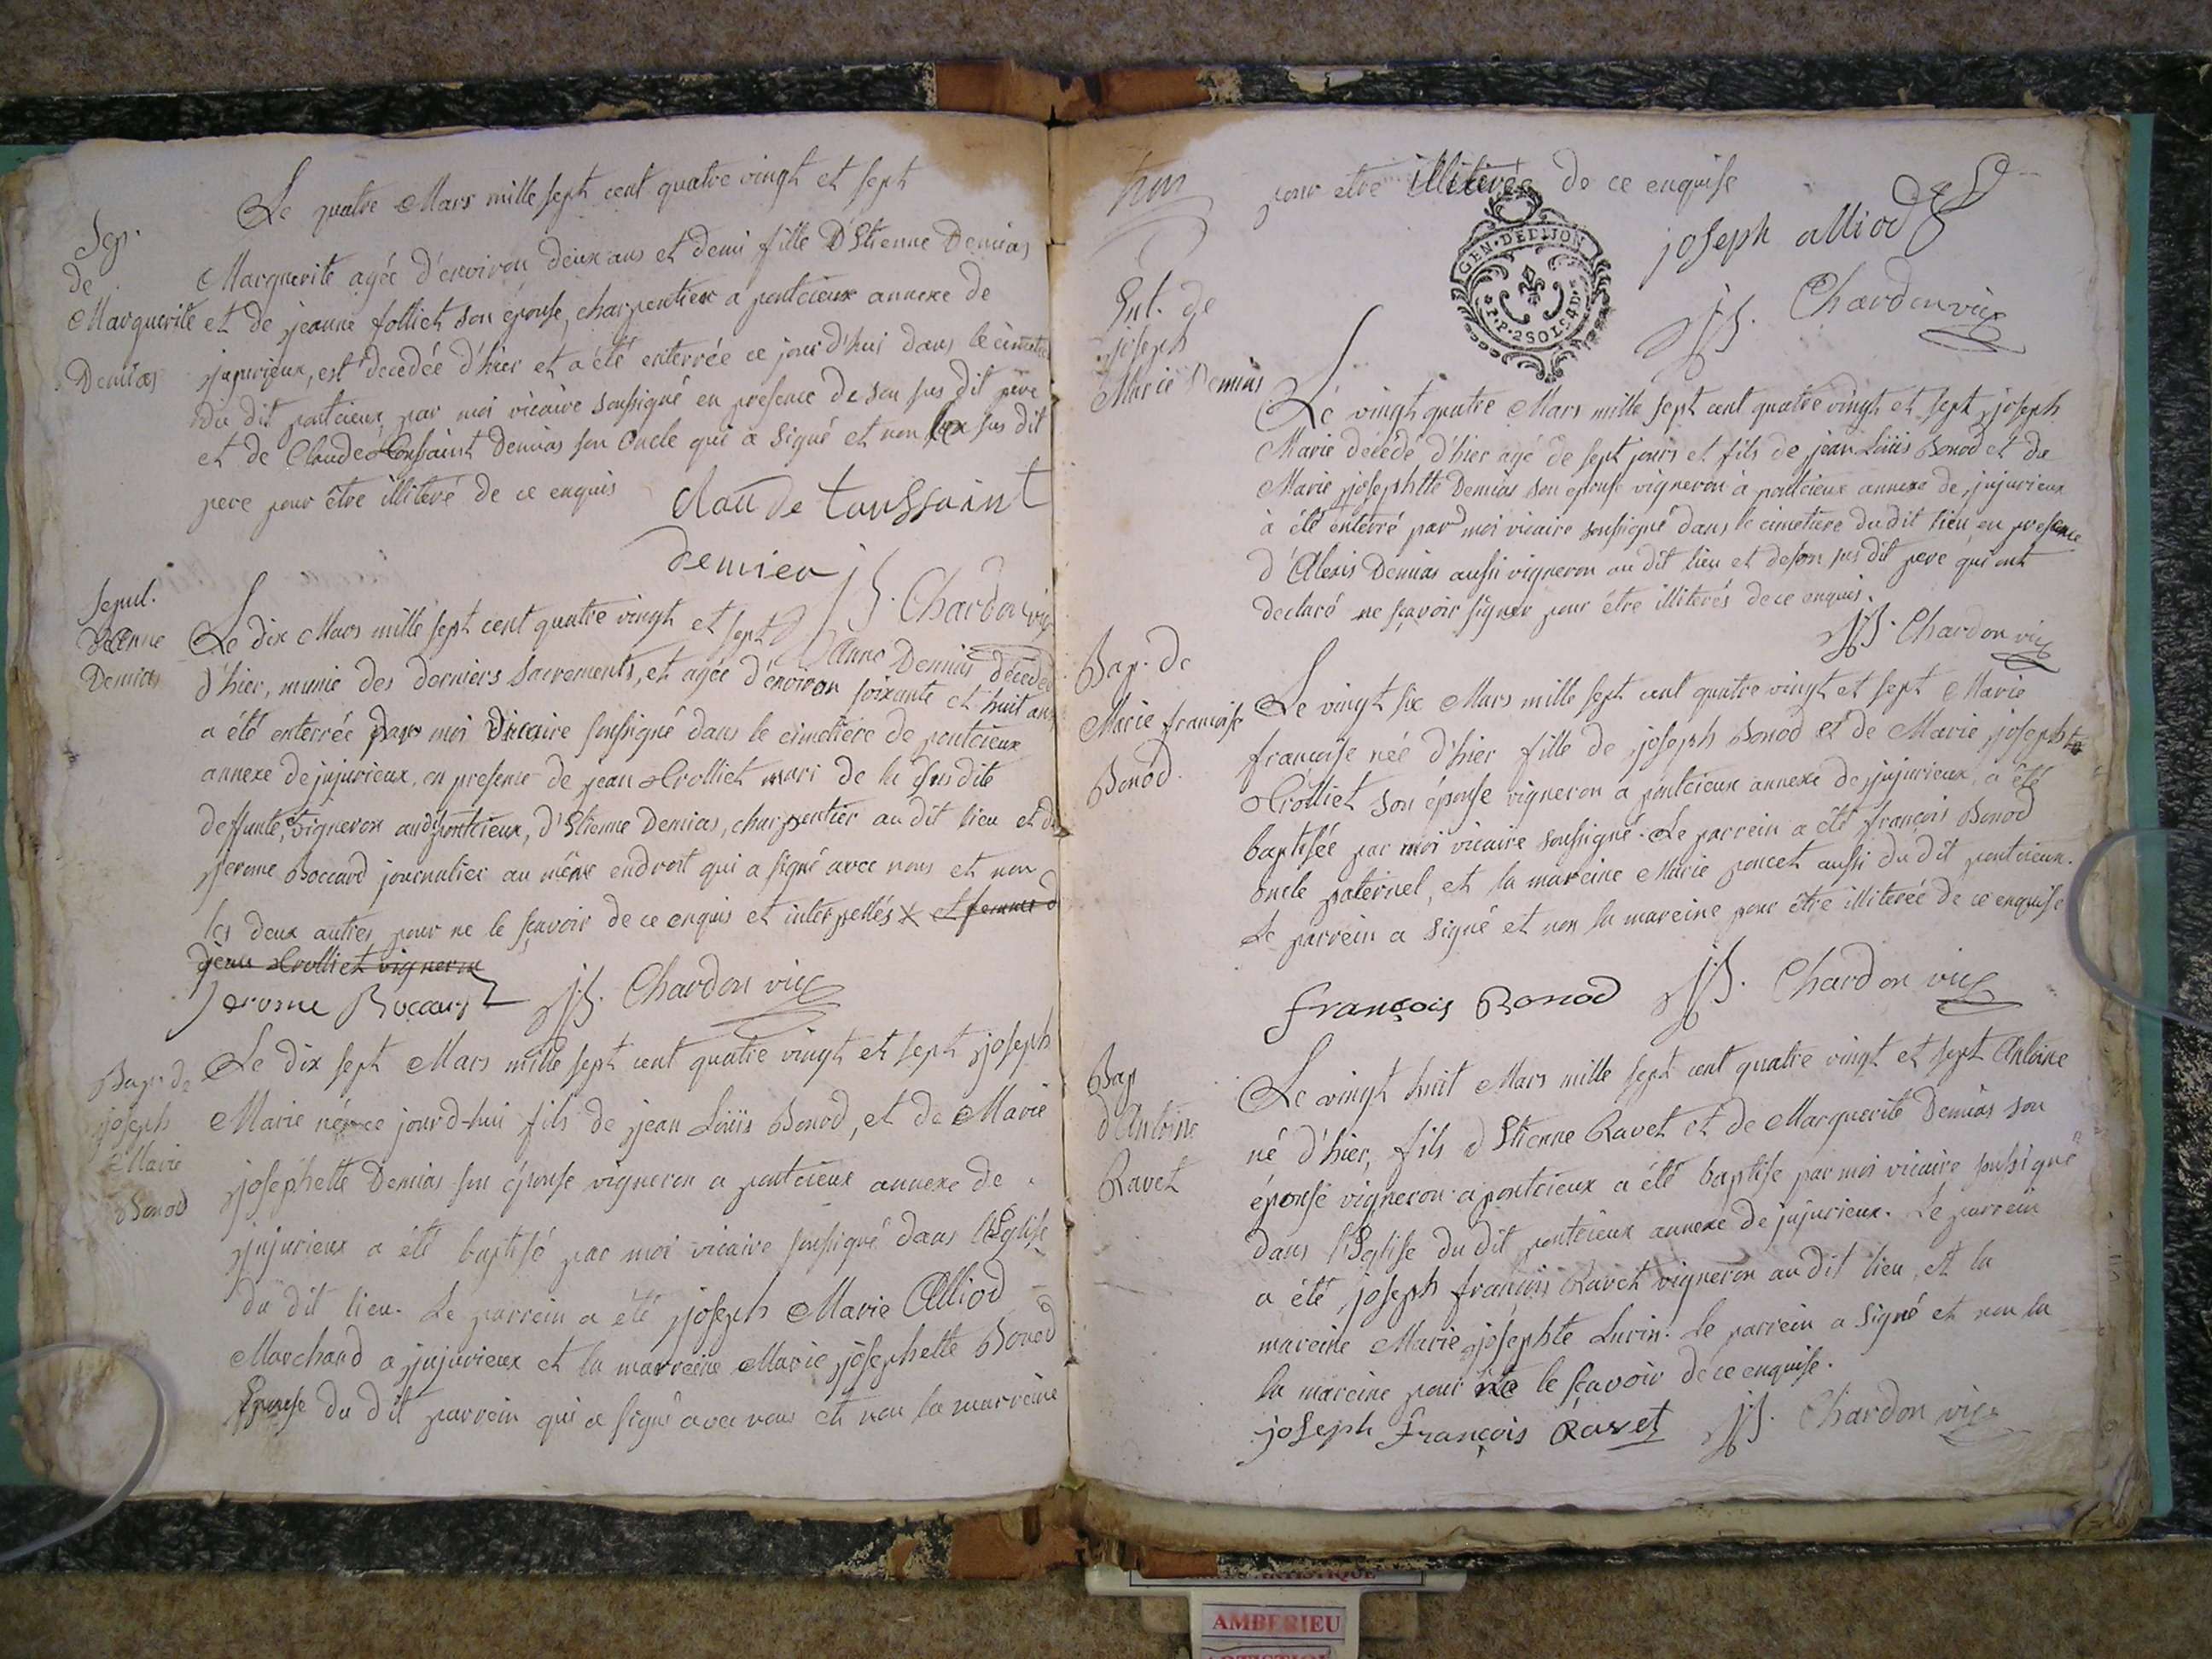 Le quatre Mars mille sept cent quatre vingt et sept
Sep.
de
Marguerite
Demias
Marguerite agée d'environ deux ans et demi fille d'Etienne Demias
et de jeanne folliet son épouse, charpentier a pontcieux annexe de
jujurieux, est decedée d'hier et a été enterrée ce jour d'hui dans le cimetiere
du dit pontcieux par moi vicaire soussigné en presence de son sus dit pere
et de Claude Toussaint Demias son Oncle qui a signé et non le sus dit
pere pour être illiteré de ce enquis
Claude toussaint
demiea
J B. Chardon vic
Sepul.
d'Anne
Demias
Le dix Mars mille sept cent quatre vingt et sept Anne Demias décedée
d'hier, munie des derniers sacrements, et agée d'environ soixante et huit ans
a été enterrée par moi Vicaire soussigné dans le cimetiere de pontcieux
annexe de jujurieux, en presence de jean Trolliet mari de la susdite
deffunte, et vigneron audit pontcieux, d'Etienne Demias, charpentier au dit lieu et de
jerome Boccard journalier au même endroit qui a signé avec nous et non
les deux autres pour ne le sçavoir de ce enquis et interpellés x et femme d
jean Trolliet vigneron
Jerome Boccard JB. Chardon vic
Bap. de
joseph
Marie
Bonod
Le dix sept Mars mille sept cent quatre vingt et sept joseph
Marie né ce jourd-hui fils de jean Loüis Bonod, et de Marie
josephette Demias son épouse vigneron a pontcieux annexe de
jujurieux a été baptisé par moi vicaire soussigné dans l'Eglise
du dit lieu. Le parrein a été joseph Marie Alliod
Marchand a jujurieux et la marreine Marie josephette Bonod
Epouse du dit parrein qui a signé avec nous et non la marreine
pour etre illiterée de ce enquise
joseph alliod
JB. Chardon vic
GEN. DE DIJON
P.P. 2 SOLS 4 D
Ent. de
joseph
Marie Demias
Le vingt quatre Mars mille sept cent quatre vingt et sept joseph
Marie decédé d'hier agé de sept jours et fils de jean Loüis Bonod et de
Marie josephtte Demias son epouse vigneron à pontcieux annexe de jujurieux
à été enterré par moi vicaire soussigné dans le cimetiere du dit lieu, en presence
d'Alexis Demias aussi vigneron au dit lieu et de son sus dit pere qui ont
declaré ne sçavoir signer pour être illiterés de ce enquis.
JB. Chardon vic
Bap. de
Marie francoise
Bonod.
Le vingt six Mars mille sept cent quatre vingt et sept Marie
francoise née d'hier fille de joseph Bonod et de Marie josephte
Trolliet son épouse vigneron a pontcieux annexe de jujurieux, a été
baptisée par moi vicaire soussigné. Le parrein a été françois Bonod
oncle paternel, et la mareine Marie poncet aussi du dit pontcieux.
Le parrein a signé et non la mareine pour être illiterée de ce enquise
françois Bonod JB. Chardon vic
Bap
d'Antoine
Ravet
Le vingt huit Mars mille sept cent quatre vingt et sept Antoine
né d'hier, fils d'Etienne Ravet et de Marguerite Demias son
épouse vigneron a pontcieux a été baptise par moi vicaire soussigné
dans l'Eglise du dit pontcieux annexe de jujurieux. Le parrein
a été joseph francois Ravet vigneron au dit lieu, et la
mareine Marie josephte Lurin. Le parrein a signé et non la
la mareine pour ne le sçavoir de ce enquise.
joseph françois Ravet JB. Chardon vic
AMBERIEU